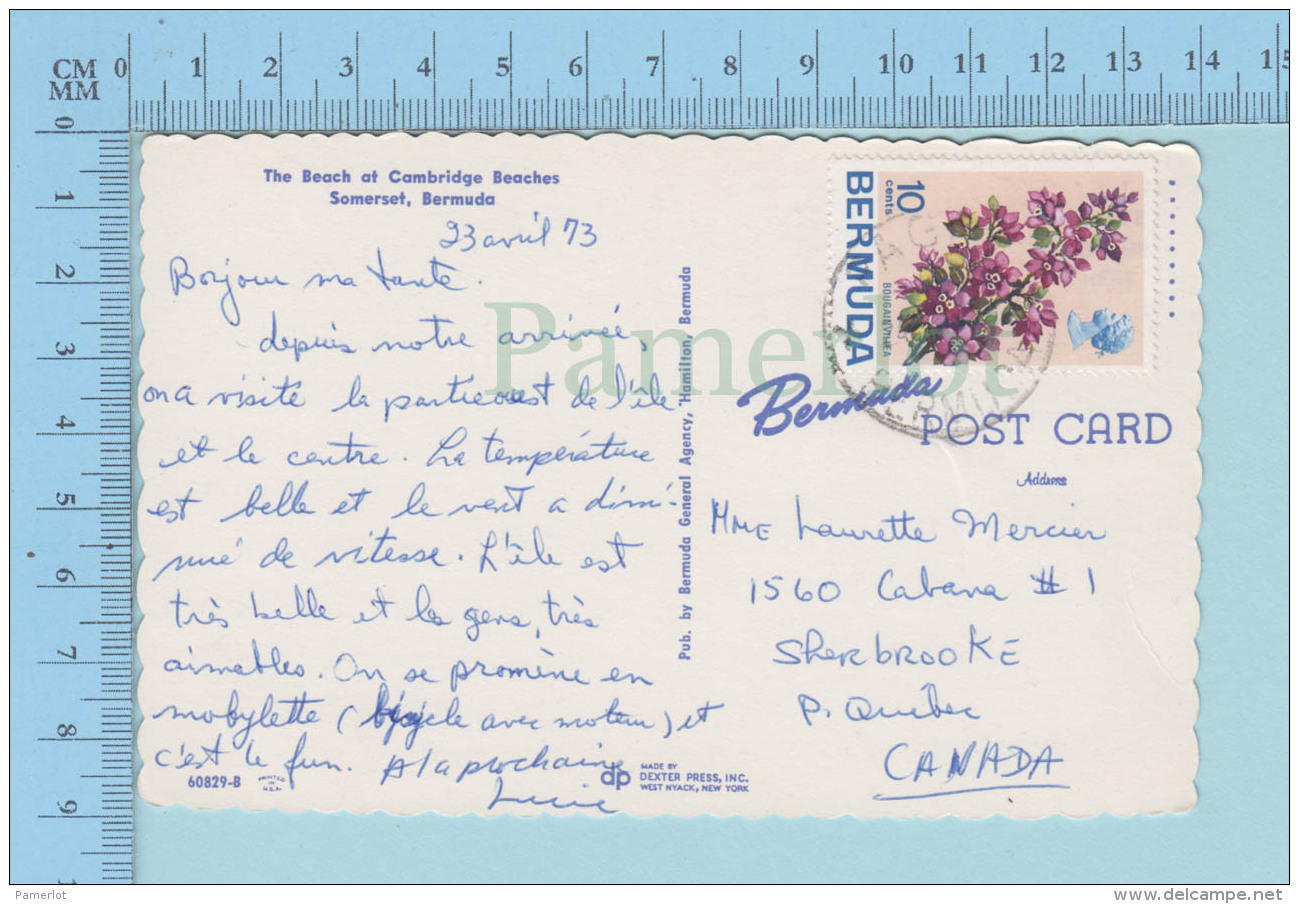 CM 0 1 2 3 4 5 6 7 8 9 10 11 12 13 14 15
MM
0 1 2 3 4 5 6 7 8 9 1
The Beach at Cambridge Beaches
Somerset, Bermuda
23 avril 73
Bonjour ma tante.
depuis notre arrivée,
on a visité la partie ouest de l'île
et le centre. La température
est belle et le vent a dimi-
nué de vitesse. L'île est
très belle et les gens, très
aimables. On se promène en
mobylette (bicycle avec moteur) et
c'est le fun. A la prochaine
Lucie
60829-B
PRINTED
IN
U.S.A.
dp
MADE BY
DEXTER PRESS, INC.
WEST NYACK, NEW YORK
Pub. by Bermuda General Agency, Hamilton, Bermuda
10
cents
BERMUDA
BOUGAINVILLEA
BERMUDA
Bermuda
POST CARD
Address
MME Laurette Mercier
1560 Cabana # 1
SherbrooKE
P. Québec
CANADA
Pamerlot
Pamerlot
www.delcampe.net